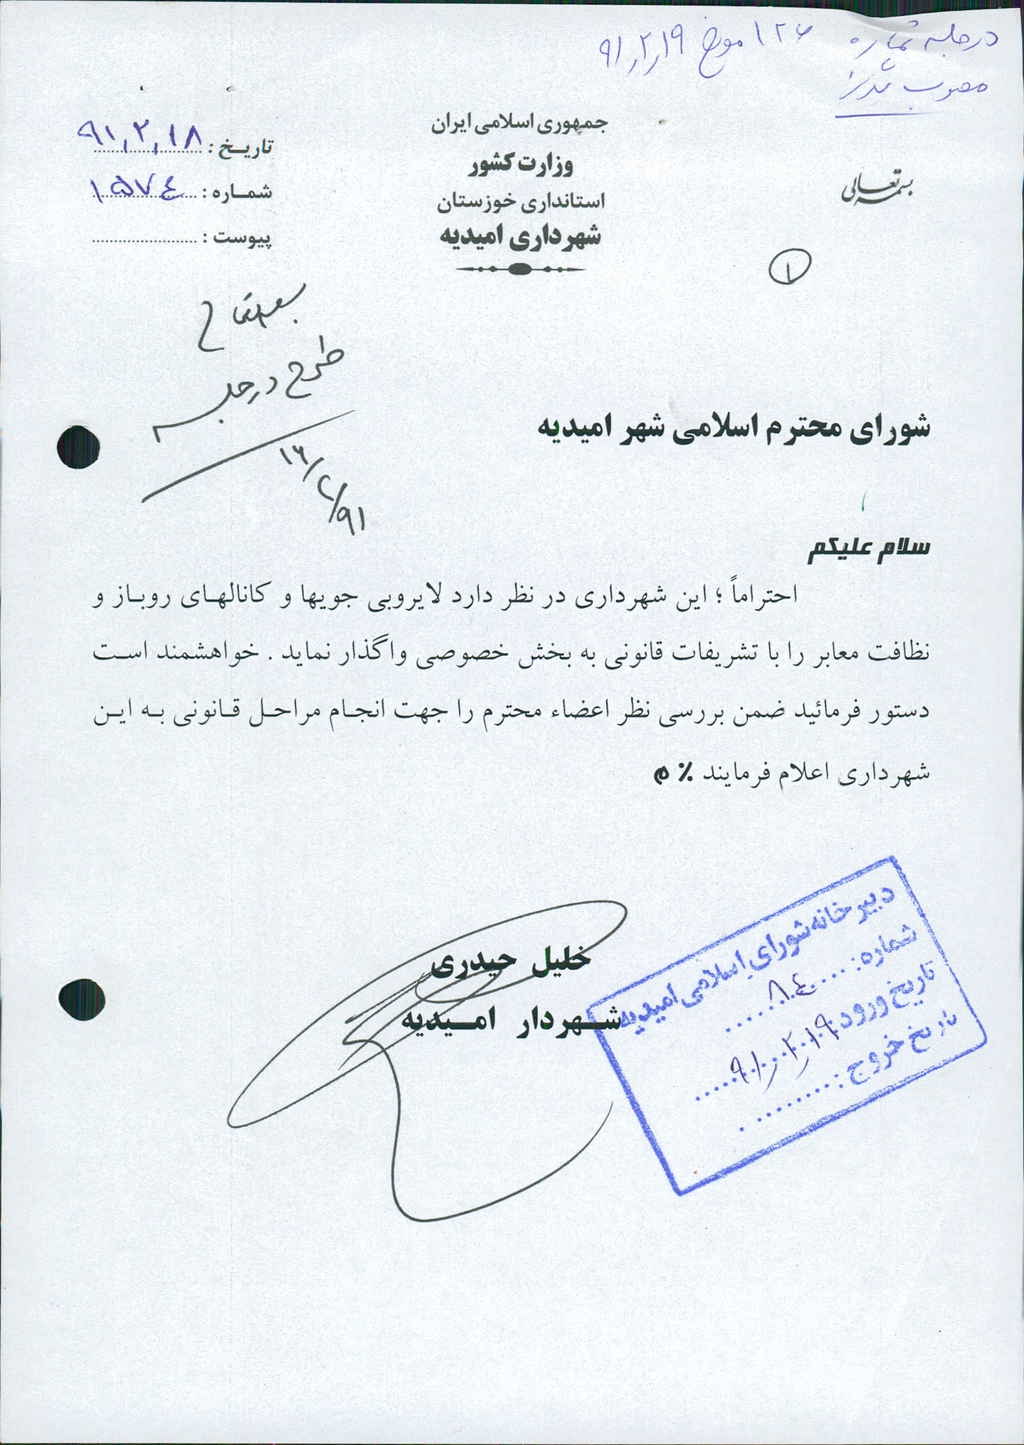 در جلسه شماره ۱۲۶ مورخ ۹۱,۲,۱۹
مصوب گردید
بسمه تعالی
جمهوری اسلامی ایران
وزارت کشور
استانداری خوزستان
شهرداری امیدیه
تاریخ : ۹۱,۲,۱۸
شماره : ۱۰۵۷۴
پیوست :
۱
بسمه تعالی
طرح در جلسه
شورای محترم اسلامی شهر امیدیه
سلام علیکم
احتراماً ؛ این شهرداری در نظر دارد لایروبی جویها و کانالهای روباز و
نظافت معابر را با تشریفات قانونی به بخش خصوصی واگذار نماید . خواهشمند است
دستور فرمائید ضمن بررسی نظر اعضاء محترم را جهت انجام مراحل قانونی به این
شهرداری اعلام فرمایند ٪ م
خلیل حیدری
شهردار امیدیه
دبیرخانه شورای اسلامی امیدیه
شماره: ۸۴
تاریخ ورود: ۹۱,۲,۱۹
تاریخ خروج: